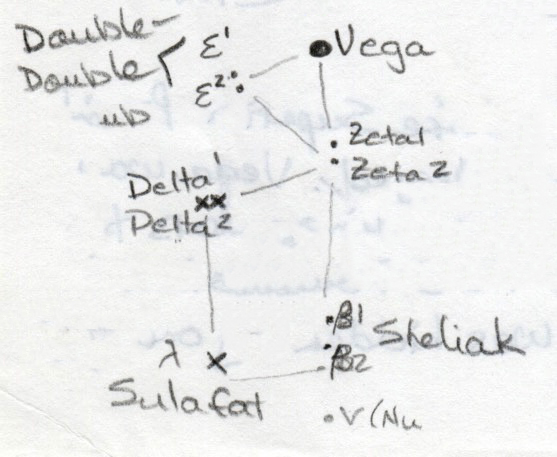 Double-
Double
ub
ε1
ε2
Vega
Zeta1
Zeta2
Delta1
Delta2
β1
β2
Sheliak
λ
Sulafat
ν (Nu